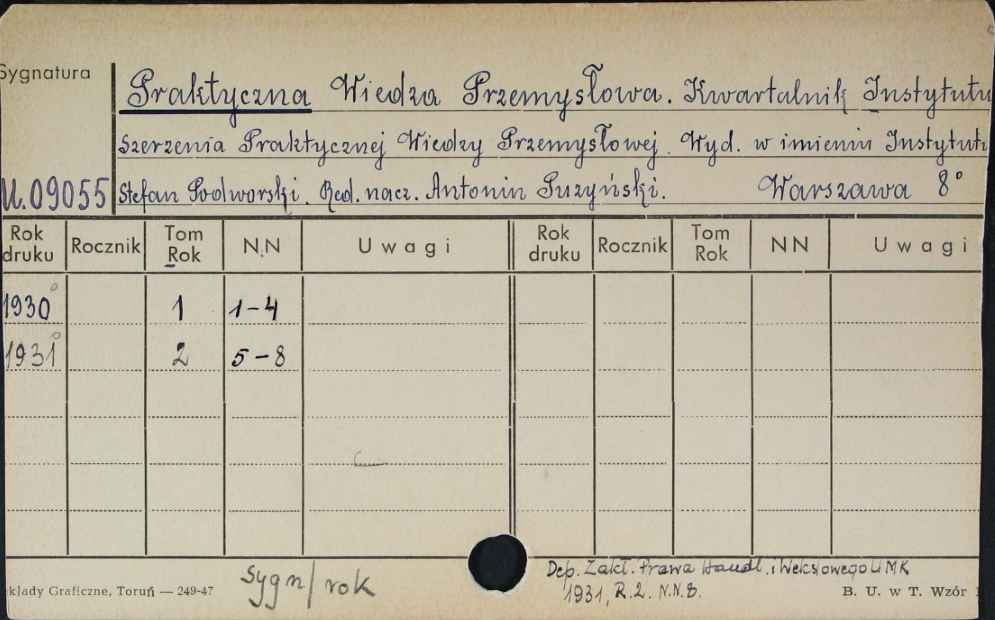 Sygnatura
Praktyczna Wiedza Przemysłowa. Kwartalnik Instytutu
Szerzenia Praktycznej Wiedzy Przemysłowej. Wyd. w imieniu Instytutu
U.09055 Stefan Podworski. Red. nacz. Antonin Suzyński. Warszawa 8°
Rok druku Rocznik Tom Rok N.N Uwagi Rok druku Rocznik Tom Rok NN Uwagi
1930° 1 1-4
1931° 2 5-8
Sygn/rok
Dep. Zakł. Prawa Handl. i Wekslowego UMK
1931, R.2. N.N.8.
kłady Graficzne, Toruń — 249-47
B. U. w T. Wzór